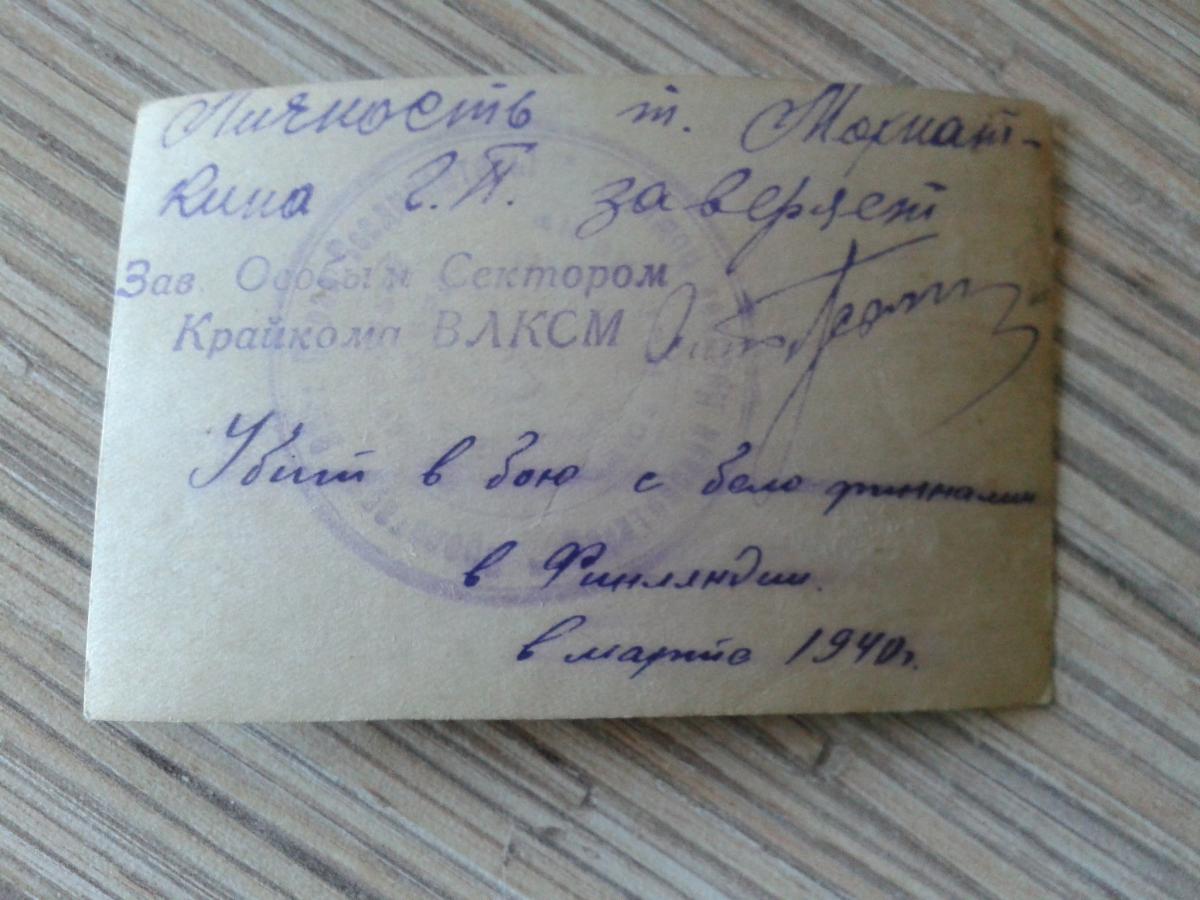 Личность т. Мохнат-
кина Г.П. заверяет
Зав. Особым Сектором
Крайкома ВЛКСМ
Убит в бою с бело финнами
в Финляндии.
в марте 1940г.